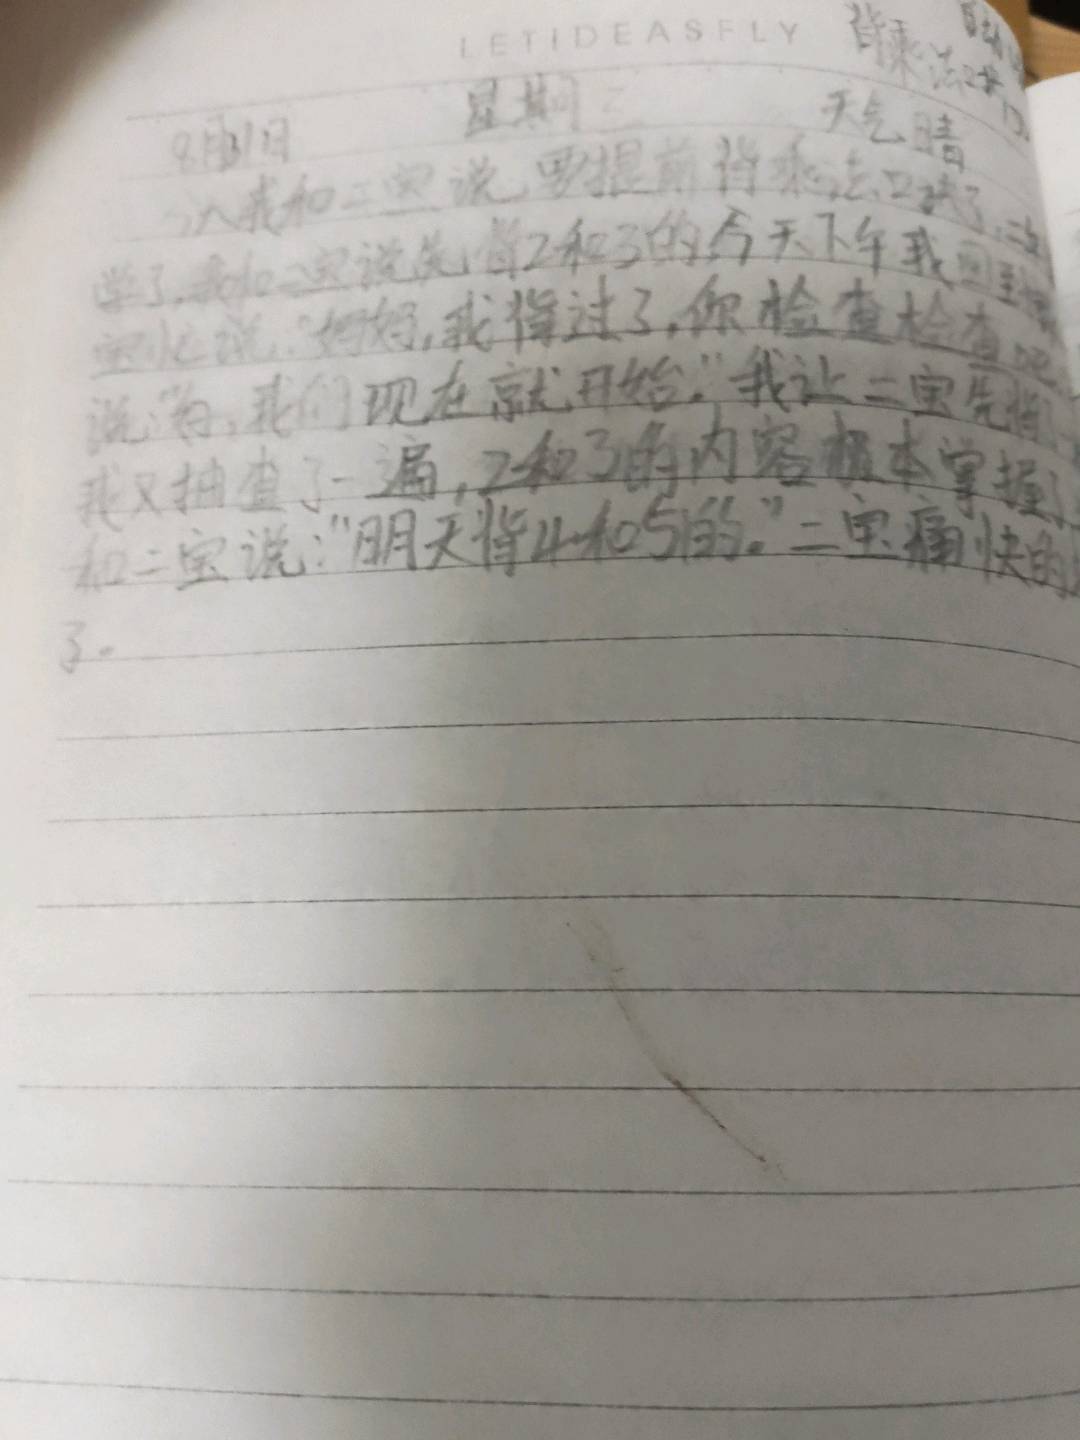 LETIDEASFLY
背乘法口诀
星期二 天气晴
我和二宝说,要提前背乘法口诀了,二宝
学了,我和二宝说先背2和3的,今天下午我回到
宝忙说:"妈妈,我背过了,你检查检查吧
说:"好,我们现在就开始."我让二宝先背
我又抽查了一遍,2和3的内容根本掌握了
和二宝说:"明天背4和5的。"二宝痛快的
了。